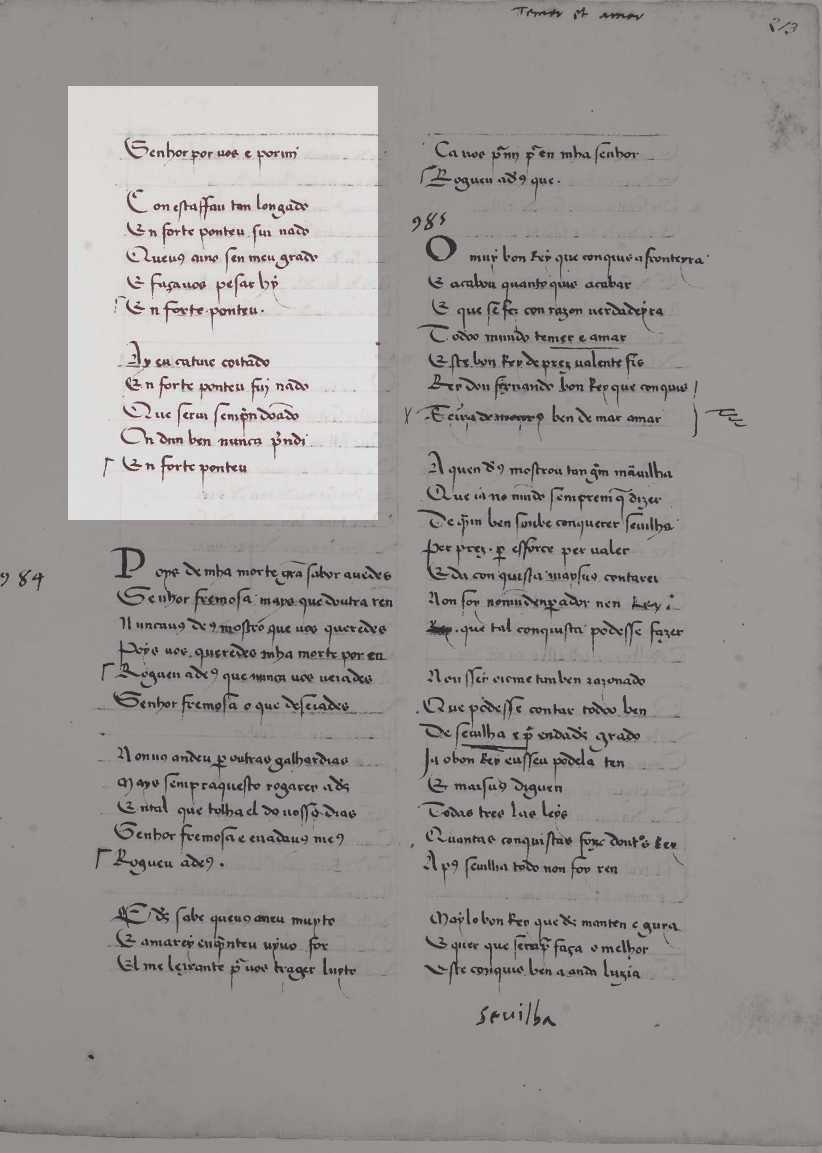 Temer et amar
213
Senhor por uos e por mi
Con estassau tan longado
En forte ponteu fui nado
Queu9 amo sen meu grado
E fuzauos pesar hy
En forte ponteu.
Ay eu catiuo coitado
En forte ponteu fuj nado
Que serui semp̃ndõado
On dun ben nunca p̃ndi
En forte ponteu
984
Poys de mha morte grã sabor auedes
Senhor fremosa mays que doutra ren
Nuncau9 de9 mostrõ que uos queredes
Poys uos queredes mha morte por en
Rogueu a de9 que nunca uos ueiades
Senhor fremosa o que deseiades
Nonu9 andeu p outras galhardias
Mays sempraquesto rogarey ad's
En tal que tolha el do uosso dias
Senhor fremosa e
Rogueu ade9.
E d's sabe queu9 ameu muyto
E amarey enq̃nteu uyuo for
El me leixante p̃ uos trager luyto
Ca uos p̃ mj p̃ en mha senhor
Rogueu ad9 que.
985
O muy bon Rey que conquis a fronteyra
E acabou quanto quis acabar
E que se fez con razon uerdadeyra
Todoo mundo temer e amar
Este bon Rey de prez ualente fis
Rey don fernando bon Rey que conquis
ben de mar amar
A quen d9 mostrou tan grm mãuilha
Que ia no mũdo sempremq̃ dizer
De q̃m ben soube conquerer seuilha
Per prez. p esforce per ualer
E da con quista mays9 contarei
Non foy no mũdenpador nen Rey
que tal conquista podesse fazer
Non ssey oiome tan ben razonado
Que podesse contar todoo ben
De seuilha e p̃ end ad's grado
Ja obon Rey eusseu podela ten
E maisu9 diguen
Todas tres las leys
Quantas conquistas forõ dout's Rey
Ap9 seuilha todo non foy ren
May lo bon Rey que d's manten e guya
E quer que faça o melhor
Este conquis ben a anda luzia
seuilha